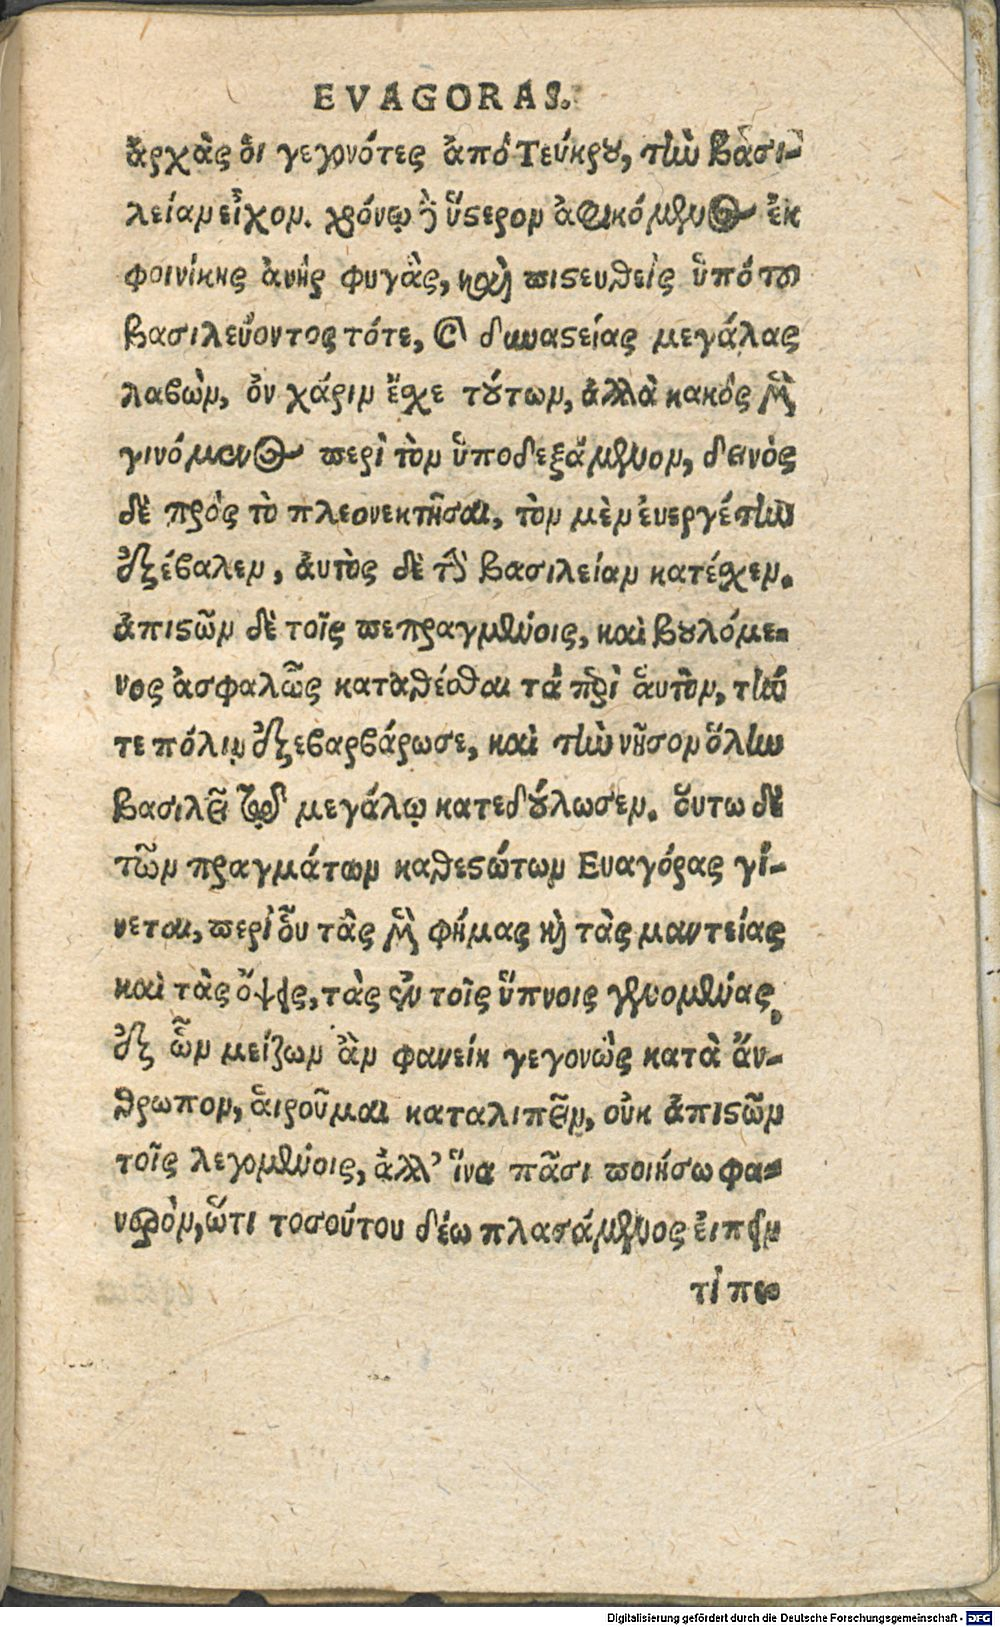 EVAGORAS.
ἀρχὰς ὁι γεγονότες ἀπὸ Τεύκρου, τὴν βασι-
λείαν εἶχον. χρόνῳ δ' ὕστερον ἀφικόμενος ἐκ
φοινίκης ἀνὴρ φυγὰς, καὶ πιστευθεὶς ὑπὸ τοῦ
βασιλεύοντος τότε, καὶ δυναστείας μεγάλας
λαβὼν, ὀν χάριν ἔχε τούτων, ἀλλὰ κακὸς μὲν
γινόμενος περὶ τὸν ὑποδεξάμενον, δεινὸς
δὲ πρὸς τὸ πλεονεκτῆσαι, τὸν μὲν ἐυεργέτην
ἐξέβαλεν, ἀυτὸς δὲ τὴν βασιλείαν κατέσχεν.
ἀπιστῶν δὲ τοῖς πεπραγμένοις, καὶ βουλόμε-
νος ἀσφαλῶς καταθέσθαι τὰ περὶ ἁυτὸν, τὴν
τε πόλιν ἐξεβαρβάρωσε, καὶ τὴν νῆσον ὅλην
βασιλεῖ τῷ μεγάλῳ κατεδούλωσεν. ὅυτω δὲ
τῶν πραγμάτων καθεστώτων Ευαγόρας γί-
νεται, περὶ ὗ τὰς μὲν φήμας καὶ τὰς μαντείας
καὶ τὰς ὄψεις, τὰς ἐν τοῖς ὕπνοις γενομένας,
ἐξ ὧν μείζων ἂν φανείη γεγονὼς κατὰ ἄν-
θρωπον, ἁιροῦμαι καταλιπεῖν, οὐκ ἀπιστῶν
τοῖς λεγομένοις, ἀλλ' ἵνα πᾶσι ποιήσω φα-
νερὸν, ὥτι τοσούτου δέω πλασάμενος ἐιπεῖν
τὶ πε
Digitalisierung gefördert durch die Deutsche Forschungsgemeinschaft - DFG